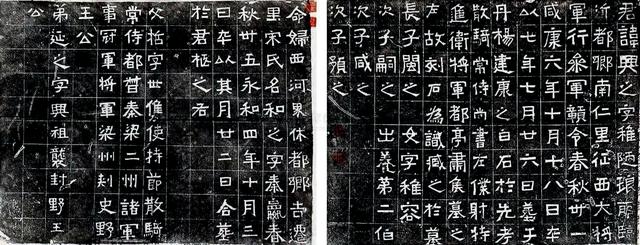 君諱興之字稚陋琅耶臨
沂都鄉南仁里征西大將
軍行參軍贛令春秋卅一
咸康六年十月十八日卒
以七年七月廿六日葬于
丹楊建康之白石於先考
散騎常侍尚書左僕射特
進衛將軍都亭肅侯墓之
左故刻石為識臧之於墓
長子閩之　女字稚容
次子嗣之　出養第二伯
次子咸之
次子預之
命婦西河界休都鄉吉遷
里宋氏名和之字秦嬴春
秋卅五永和四年十月三
日卒以其月廿二日合葬
於君柩之右
父哲字世儁使持節散騎
常侍都督秦梁二州諸軍
事冠軍將軍梁州刾史野
王公
弟延之字興祖襲封野王
公